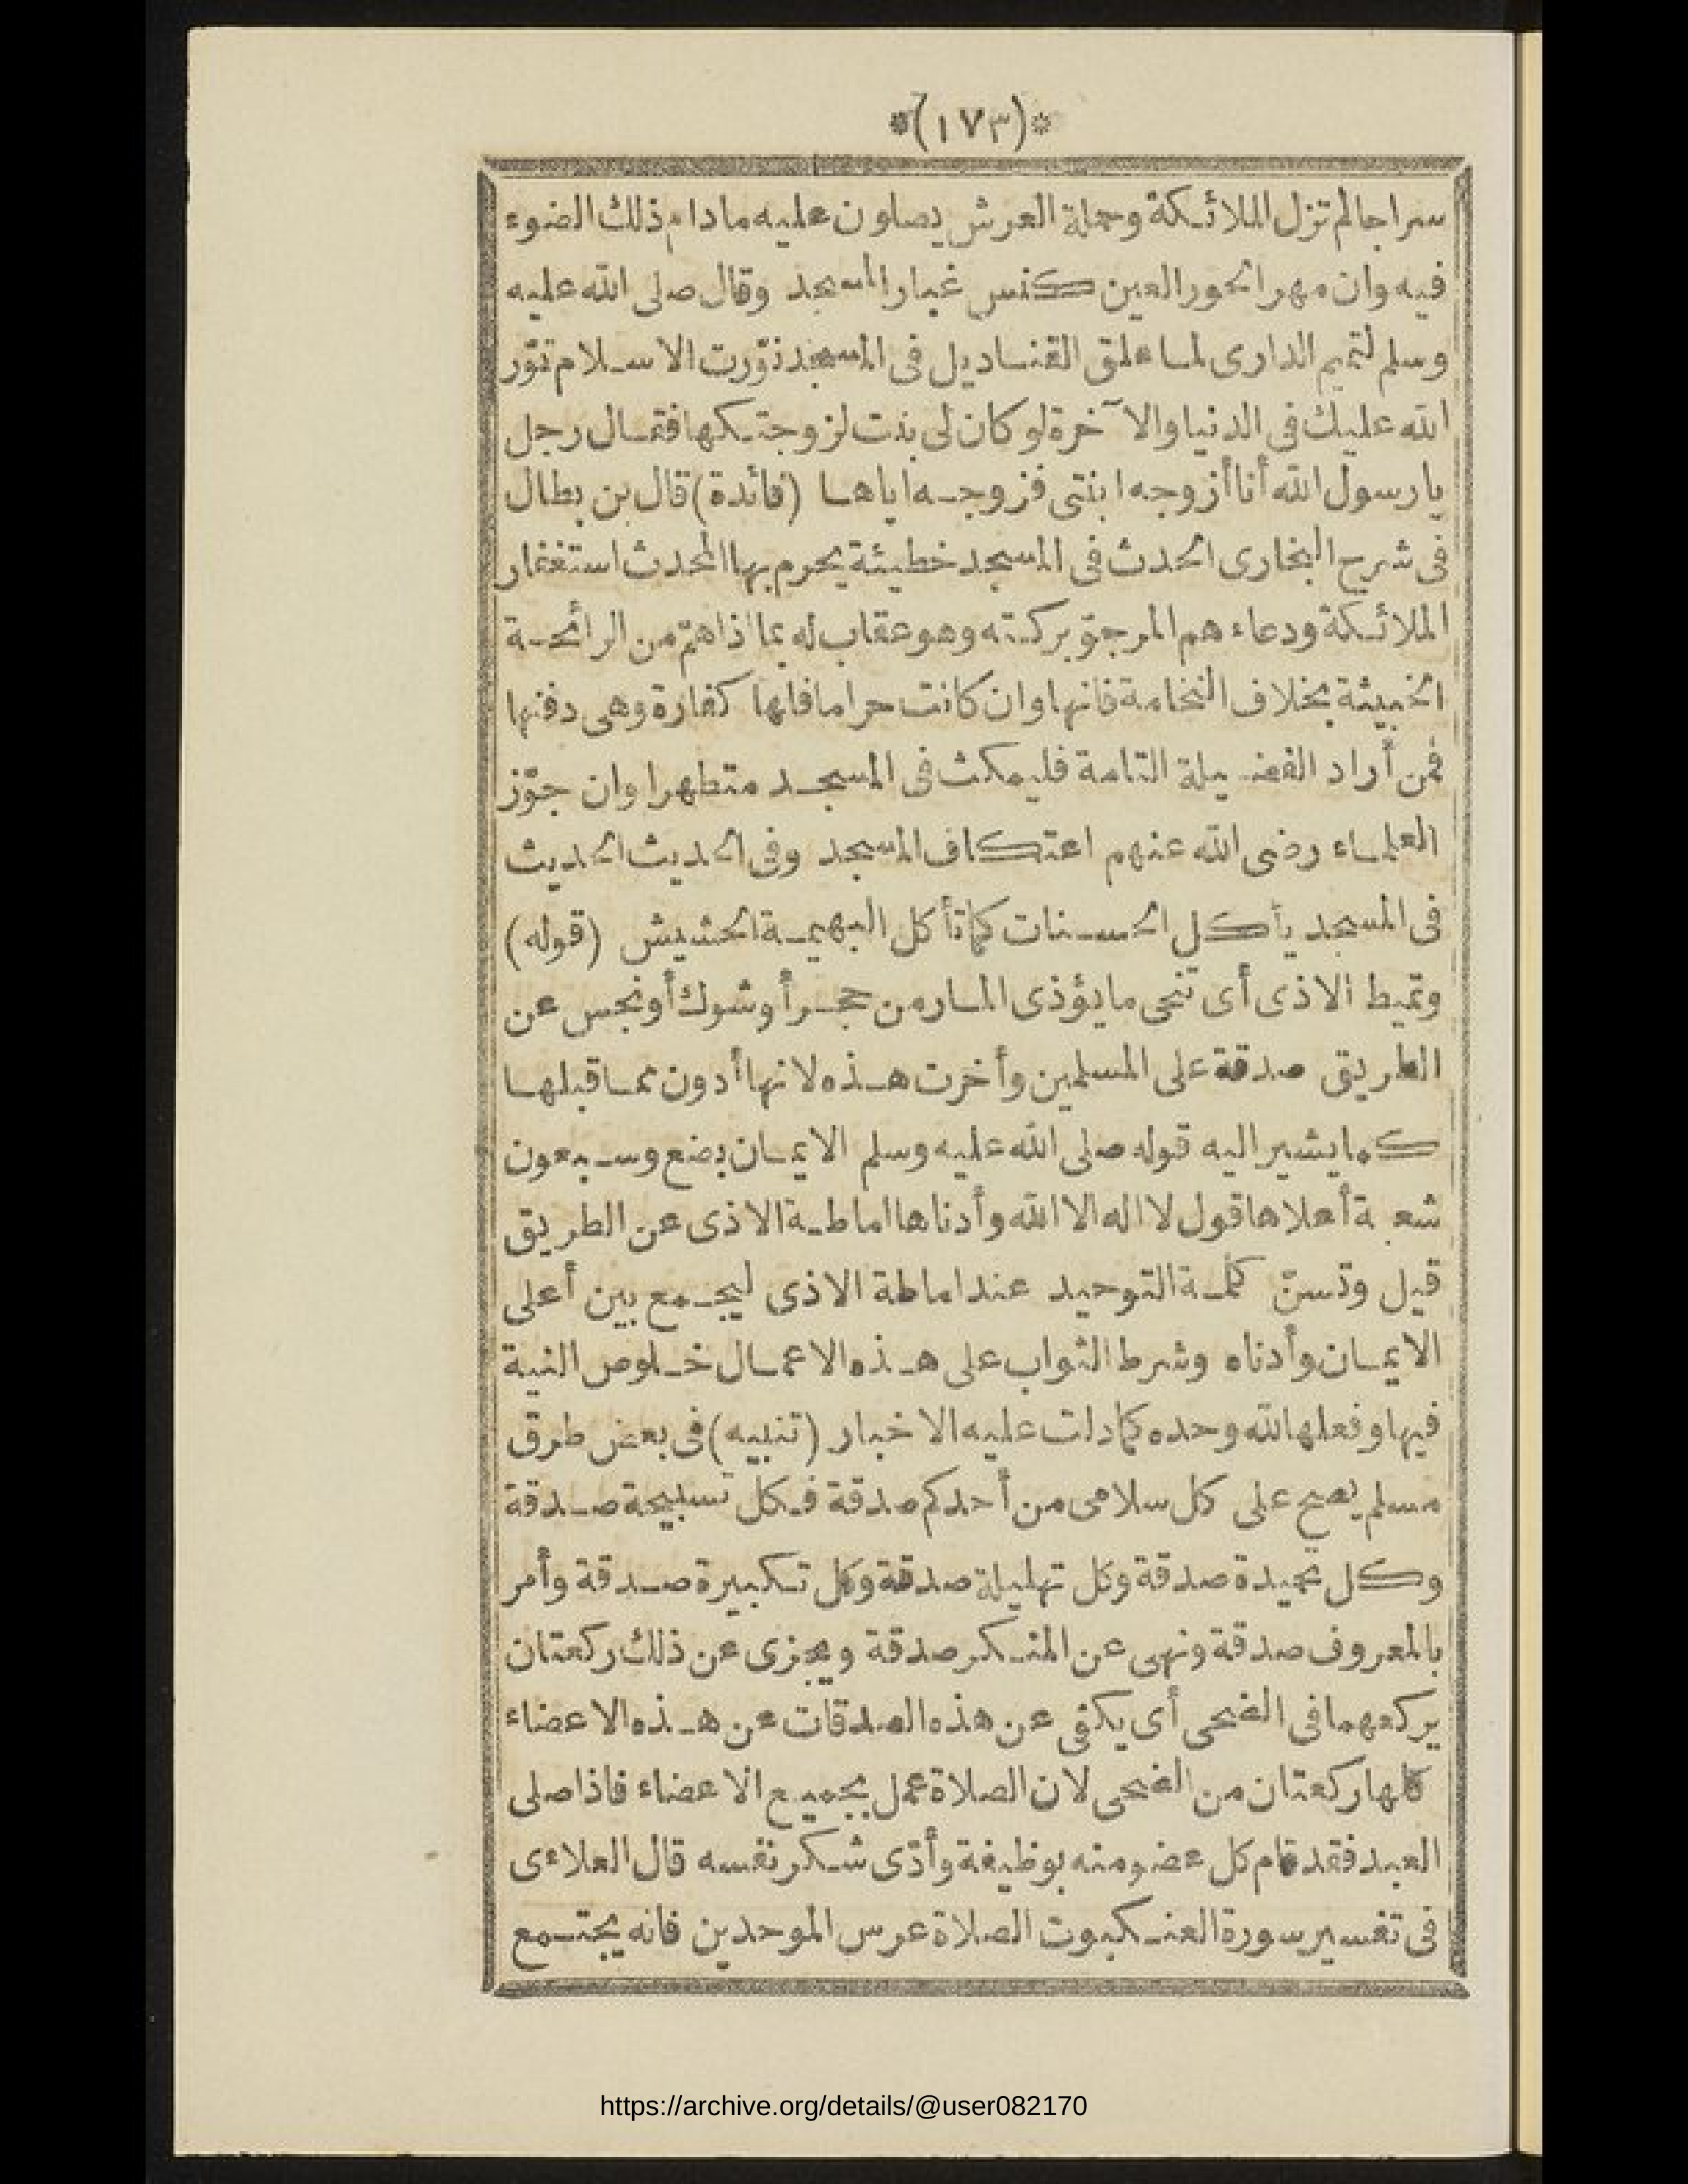 *(١٧٣)*
سراجا لم تزل الملائكة وحملة العرش يصلون عليه ما دام ذلك الضوء
فيه وان مهر الحور العين كنس غبار المسجد وقال صلى الله عليه
وسلم لتميم الدارى لما علق القناديل فى المسجد نوّرت الاسلام نوّر
الله عليك فى الدنيا والآخرة لو كان لى بنت لزوجتكها فقال رجل
يا رسول الله أنا أزوجه ابنتى فزوجه اياها (فائدة) قال بن بطال
فى شرح البخارى الحدث فى المسجد خطيئة يحرم بها المحدث استغفار
الملائكة ودعاءهم المرجوّ بركته وهو عقاب له بما اذاهم من الرائحة
الخبيثة بخلاف النخامة فانها وان كانت حراما فلها كفارة وهى دفنها
فمن أراد الفضيلة التامة فليمكث فى المسجد متطهرا وان جوّز
العلماء رضى الله عنهم اعتكاف المسجد وفى الحديث الحديث
فى المسجد يأكل الحسنات كما تأكل البهيمة الحشيش (قوله)
وتميط الاذى أى تنحى ما يؤذى المار من حجر أو شوك أو نجس عن
الطريق صدقة على المسلمين وأخرت هذه لانها أدون مما قبلها
كما يشير اليه قوله صلى الله عليه وسلم الايمان بضع وسبعون
شعبة أعلاها قول لا اله الا الله وأدناها اماطة الاذى عن الطريق
قيل وتسنّ كلمة التوحيد عند اماطة الاذى ليجمع بين أعلى
الايمان وأدناه وشرط الثواب على هذه الاعمال خلوص النية
فيها وفعلها لله وحده كما دلت عليه الاخبار (تنبيه) فى بعض طرق
مسلم يصبح على كل سلامى من أحدكم صدقة فكل تسبيحة صدقة
وكل تحميدة صدقة وكل تهليلة صدقة وكل تكبيرة صدقة وأمر
بالمعروف صدقة ونهى عن المنكر صدقة ويجزى عن ذلك ركعتان
يركعهما فى الضحى أى يكفى عن هذه الصدقات عن هذه الاعضاء
كلها ركعتان من الضحى لان الصلاة عمل بجميع الاعضاء فاذا صلى
العبد فقد قام كل عضو منه بوظيفة وأدّى شكر نفسه قال العلاءى
فى تفسير سورة العنكبوت الصلاة عرس الموحدين فانه يجتمع
https://archive.org/details/@user082170